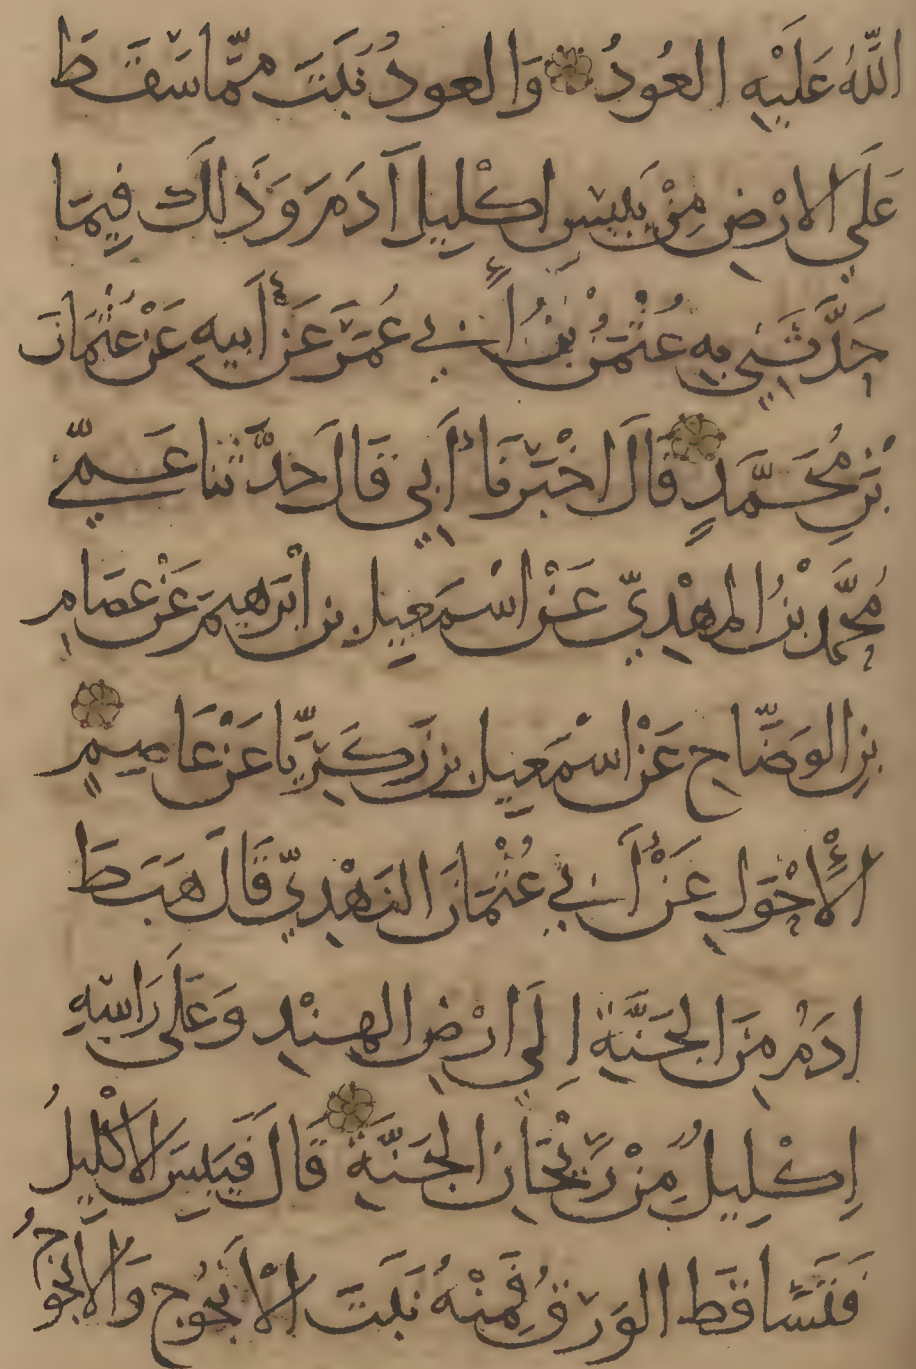 اللَّهُ عَلَيْهِ العُودُ وَالعود نَبَتَ مِمَّا سَقَطَ
عَلَى الارْضِ مِنْ يَبِيسِ اكْلِيلِ آدَمَ وَذَلِكَ فِيمَا
حَدَّثَنِي بِهِ عُثْمَنُ بْنُ أَبِي عُمَرَ عَنْ أَبِيهِ عَنْ عُثْمَانَ
بْنِ مُحَمَّدٍ قَالَ اخْبَرَنَا أَبِي قَالَ حَدَّثَنَا عَمِّي
مُحَمَّد بْنُ المَهْدِيّ عَنْ اسْمَعِيل بن ابْرَهِيمَ عَنْ عِصَامِ
بنِ الوَضَّاحِ عَنْ اسْمَعِيل بن زَكَرِيَّا عَنْ عَاصِمٍ
الأَحْوَلِ عَنْ أَبِي عُثْمَانَ النَهْدِيّ قَالَ هَبَطَ
ادَمُ مِنَ الجَنَّةِ إِلَى ارْضِ الهِنْدِ وَعَلَى رَاسِهِ
اِكْلِيلٌ مِنْ رَيْحَانِ الجَنَّةِ قَالَ فَيَبِسَ الاكْلِيلُ
فَتَسَاقَطَ الوَرَقُ فَمِنْهُ نَبَتَ الأَنْجُوج وَالأَنْجُوجُ